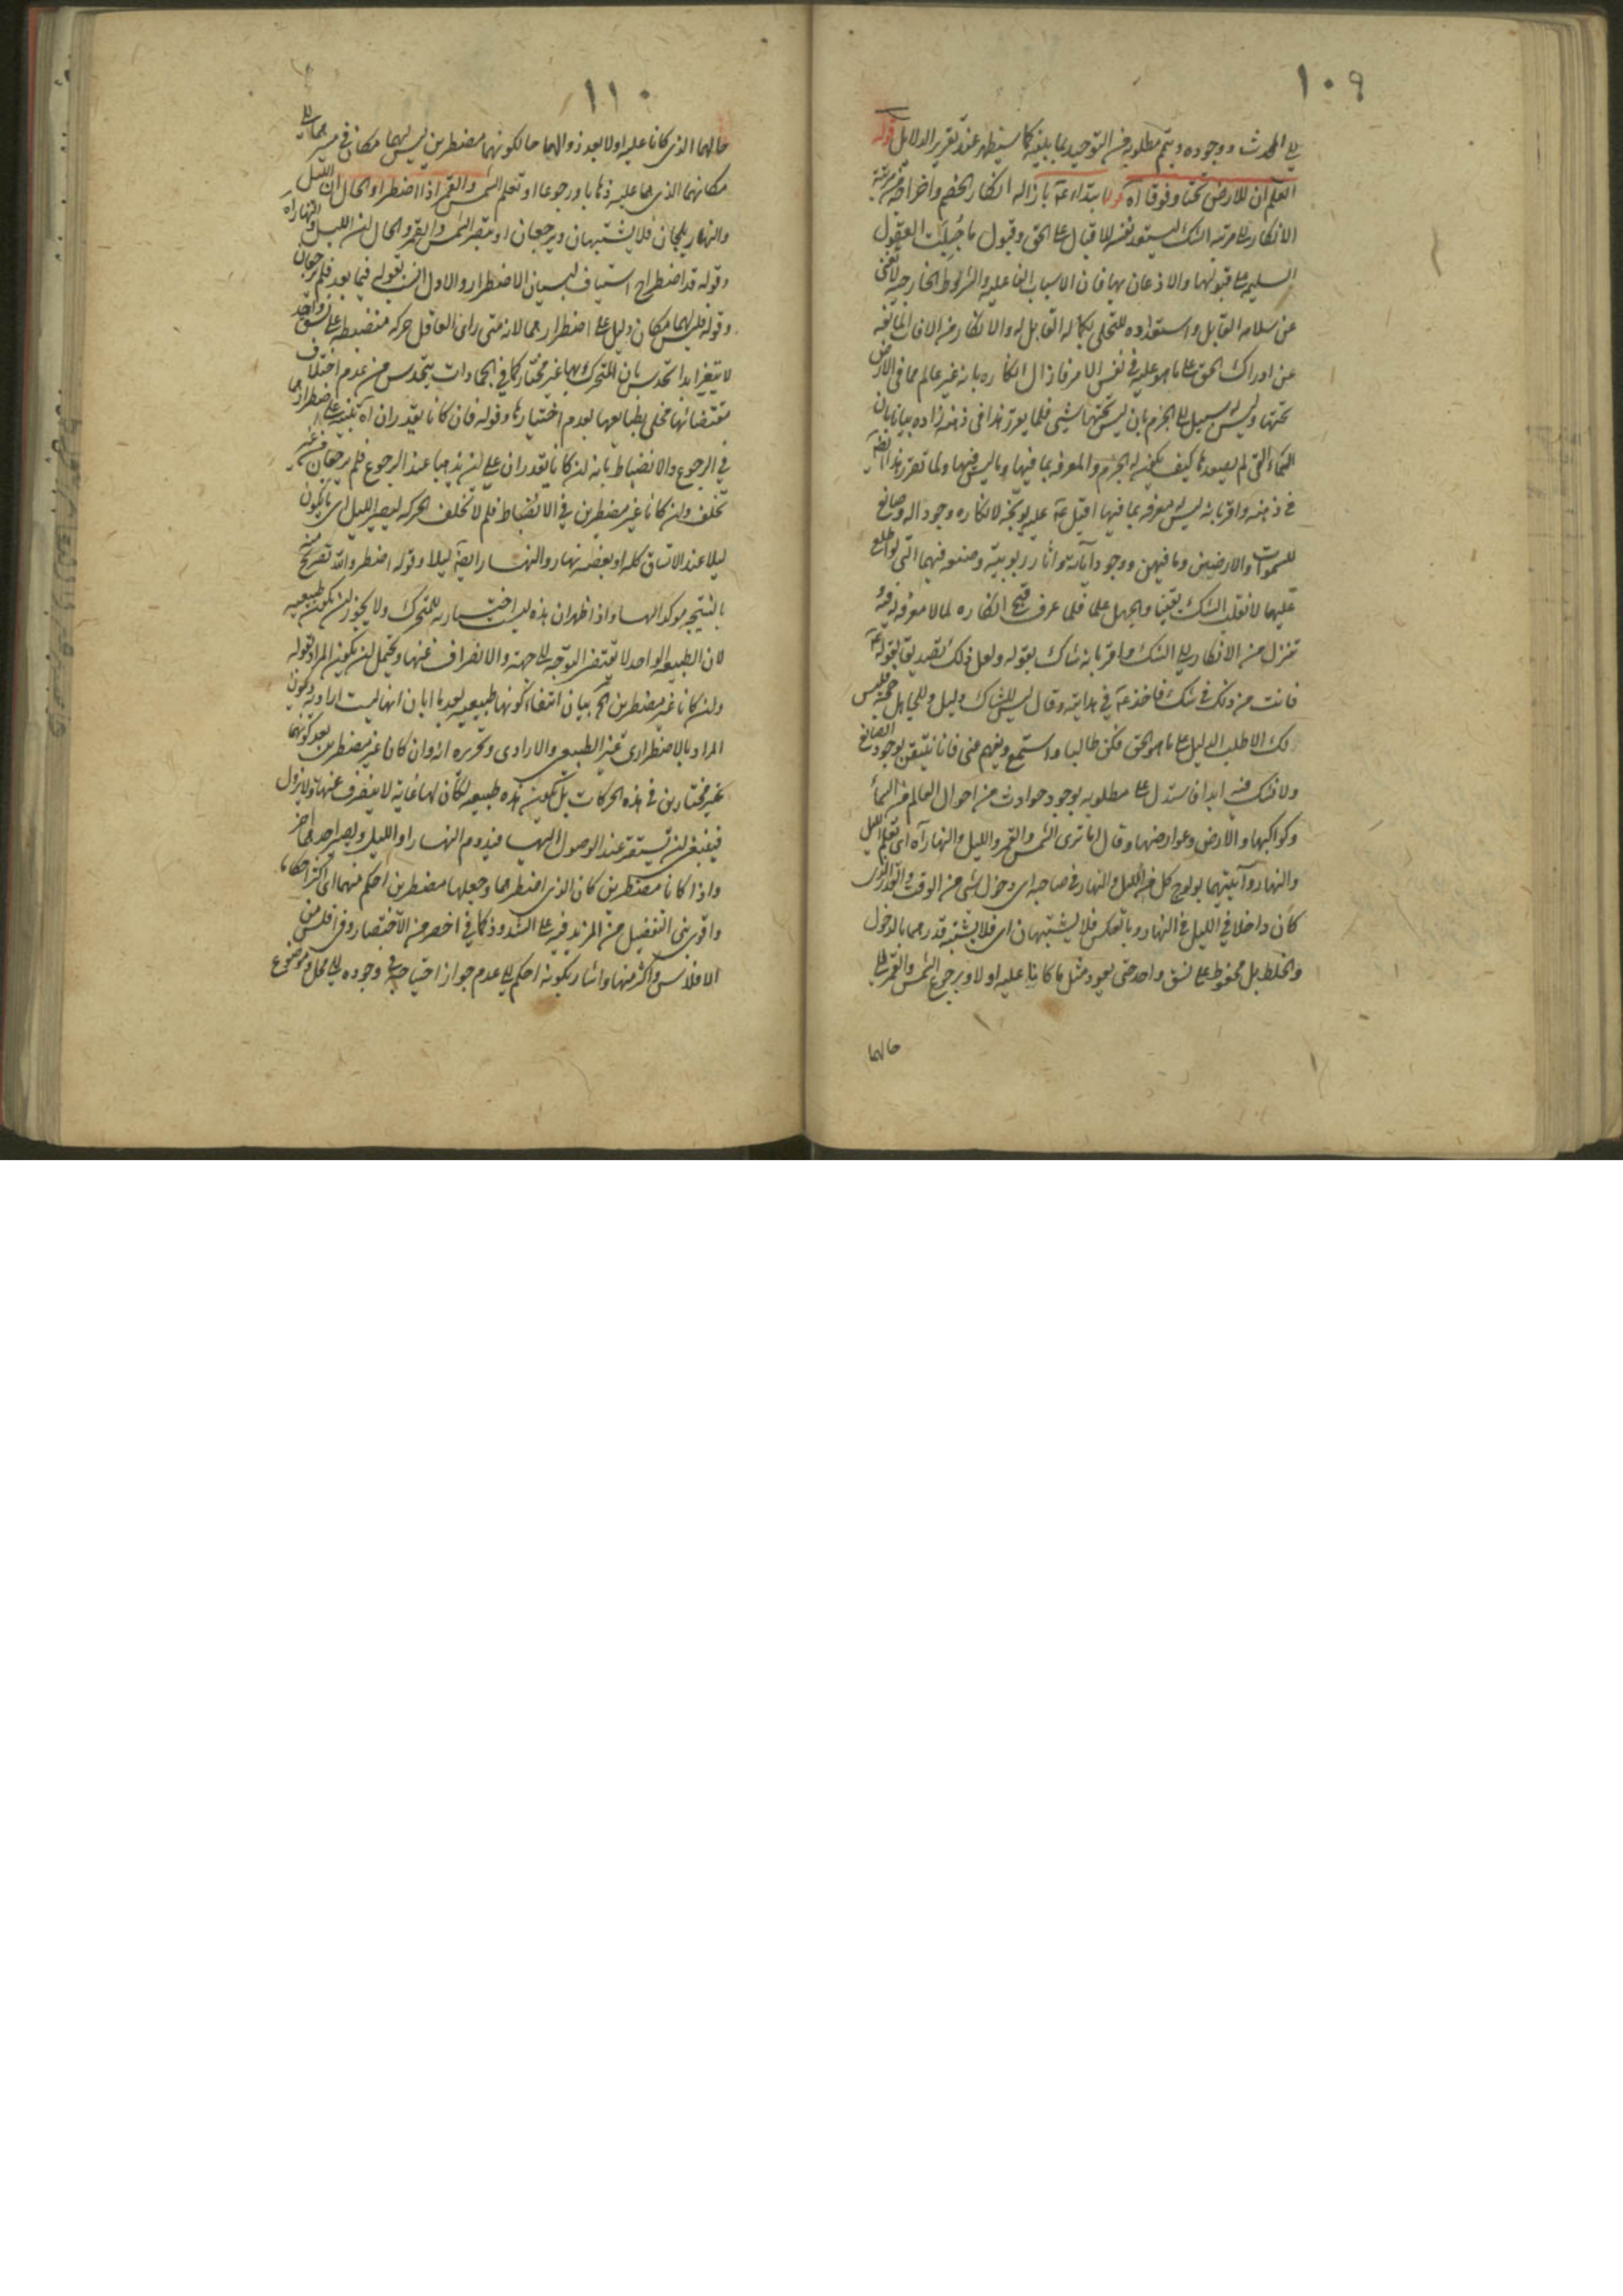 ١٠٩
الى المحدث ووجوده ويتم مطلوبه من التوحيد بما يليه كما سيظهر عند تقرير الدلايل قوله
اتعلم ان للارض تحتا وفوقا اه ابتداء بازالة انكار الخصم واخراجه من مرتبة
الانكار الى مرتبة الشك ليستعد نفسه للاقبال على الحق وقبول ما جبلت العقول
السليمة على قبولها والاذعان بها فان الاسباب الفاعلية والشرايط الخارجية لا تغنى
عن سلامة القابل واستعداده للتحلى بكماله القابل له والانكار من الافات المانعة
عن ادراك الحق على ما هو عليه في نفس الامر فازال انكاره بانه غير عالم مما في الارض
تحتها وليس له سبيل الى الجزم بان ليس تحتها شيئ فلما تقرر هذا في ذهنه زاده بيانا بان
السماء التى لم يصعدها كيف يكون له الجزم والمعرفة بما فيها وما ليس فيها ولما تقرر هذا ايضا
في ذهنه واقر بانه ليس له معرفة بما فيها اقبل عليه بتوبيخه لانكاره وجود اله وصانع
للسموات والارضين وما فيهن ووجود آياته وآثار ربوبيته وصنعه فيهما التى لو اطلع
عليها لانقلب الشك يقينا والجهل علما فلما عرف قبح انكاره لما لا معرفة له فيه
تنزل من الانكار الى الشك واقر بانه شاك بقوله ولعل ذلك تصديقا لقوله
فانت من ذلك في شك فاخذ في هدايته وقال ليس للشاك دليل وللجاهل حجة فليس
لك الا طلب الدليل على ما هو الحق فكن طالبا واستمع وافهم عنى فانا نتيقن بوجود الصانع
ولا نشك فيه ابدا فاستدل على مطلوبه بوجود حوادث من احوال العالم من السماء
وكواكبها والارض وعوارضها وقال اما ترى الشمس والقمر والليل والنهار آه اى تعلم الليل
والنهار وآيتيهما بولوج كل من الليل والنهار في صاحبه اى دخول شئ من الوقت والقدر الذى
كان داخلا في الليل في النهار وبالعكس فلا يشتبهان اى فلا يشتبه قدرهما بالدخول
والخلط بل محفوظ على نسق واحد حتى يعود مثل ما كانا عليه اولا ويرجع الشمس والقمر الى
حالهما
١١٠
حالهما الذى كانا عليه اولا بعد زوالهما حالكونهما مضطرين ليس لهما مكان في مسيرهما الى
مكانهما الذى هما عليه ذهابا ورجوعا او تعلم الشمس والقمر اذا اضطرا والحال ان الليل
والنهار يلجان فلا يشتبهان ويرجعان او تبصر الشمس والقمر والحال ان الليل والنهار آه
وقوله قد اضطرا استيناف لبيان الاضطرار والاول انسب بقوله فيما بعد فلم يرجعان
وقوله ليس لهما مكان دليل على اضطرارهما لانه متى راى العاقل حركة منضبطة على نسق واحد
لا يتغير ابدا تحدس بان المتحرك بها غير مختار كما في الجمادات يتحدس من عدم اختلاف
مقتضياتها مخلى بطبايعها بعدم اختيارها وقوله فان كانا يقدران آه تنبيه على اضطرارهما
في الرجوع والانضباط بانه ان كانا يقدران على ان يذهبا عند الرجوع فلم يرجعان من غير
تخلف وان كانا غير مضطرين في الانضباط فلم لا تخلف الحركة ليصير الليل اى ما يكون
ليلا عند الاتساق كله او بعضه نهارا والنهار ايضا ليلا وقوله اضطرا والله تصريح منه
بالنتيجة موكدا لها واذا ظهر ان هذه ليست اختيارية للمتحرك ولا يجوز ان يكون طبيعية
لان الطبيعة الواحدة لا يقتضى التوجه الى جهة والانصراف عنها ويحتمل ان يكون المراد بقوله
وان كانا غير مضطرين الخ بيان انتفاء كونها طبيعية بعد ما ابان انها ليست ارادية ويكون
المراد بالاضطرارى غير الطبيعى والارادى وتحريره انه وان كانا غير مضطرين بعد كونهما
غير مختارين في هذه الحركات بل يكون هذه طبيعية لكان لها غاية لا ينصرف عنها ولا يزول
فينبغى ان يستقر عند الوصول اليها فيدوم النهار او الليل ويصير احدهما آخر
واذا كانا مضطرين كان الذى اضطرهما وجعلهما مضطرين احكم منهما اى اكثر احكاما
واقوى بنى التفضيل من المزيد فيه على الشذوذ كما في اخصر من الاختصار وفى افلس من
الافلاس واكثر منها واشار بكونه احكم الى عدم جواز احتياجه في وجوده الى محل وموضوع